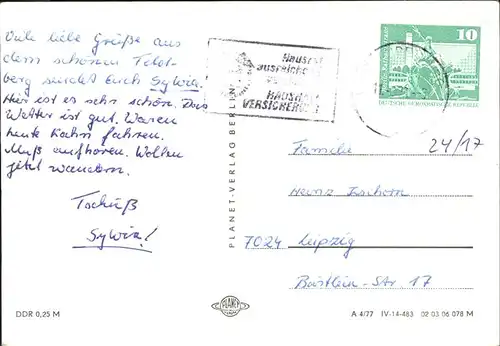 Viele liebe Grüße aus
dem schönen Feld-
berg sendet Euch Sylvia!
Hier ist es sehr schön. Das
Wetter ist gut. Waren
heute Kahn fahren.
Muß aufhören. Wollen
jetzt wandern.
Tschüß
Sylvia!
DDR 0,25 M
PLANET-VERLAG BERLIN
PLANET
Hausrat
ausreichend
HAUSHALT
VERSICHERUNG
10
DEUTSCHE DEMOKRATISCHE REPUBLIK
24/17
Familie
Heinz Tschorn
7024 Leipzig
Bästlein-Str. 17
A 4/77 IV-14-483 02 03 06 078 M